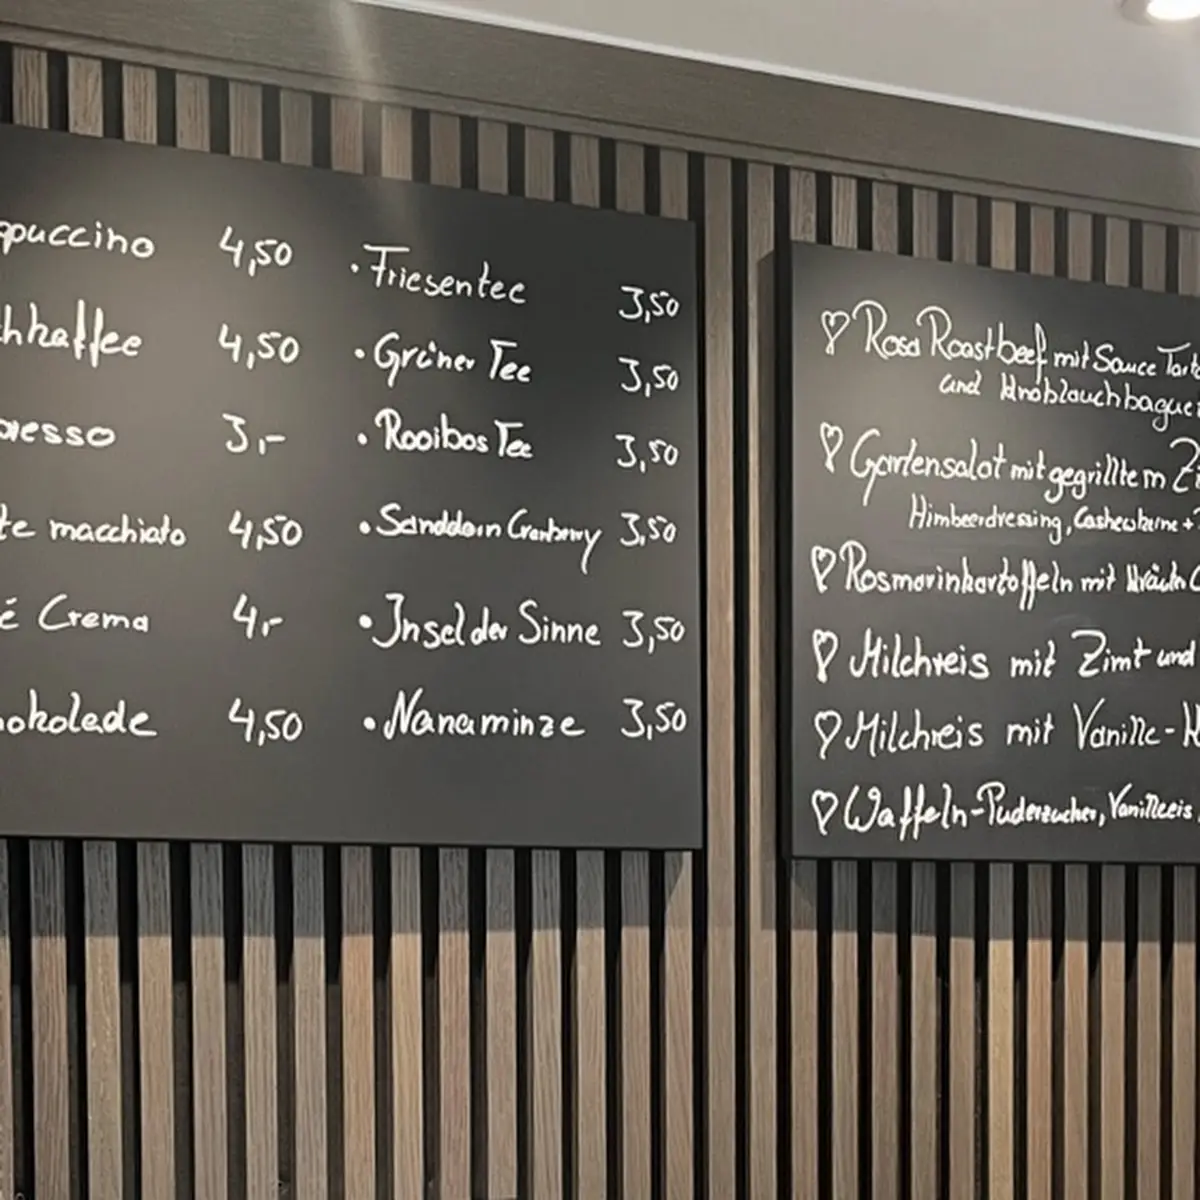 ppuccino 4,50
hkaffee 4,50
presso 3,-
te macchiato 4,50
é Crema 4,-
okolade 4,50
• Friesentee 3,50
• Grüner Tee 3,50
• Rooibos Tee 3,50
• Sanddorn Cranberry 3,50
• Insel der Sinne 3,50
• Nanaminze 3,50
♡ Rosa Roastbeef mit Sauce Tarta
und Knoblauchbague
♡ Gartensalat mit gegrilltem Zi
Himbeerdressing, Cashewkerne +
♡ Rosmarinkartoffeln mit Kräuter
♡ Milchreis mit Zimt und
♡ Milchreis mit Vanille-K
♡ Waffeln-Puderzucker, Vanilleeis